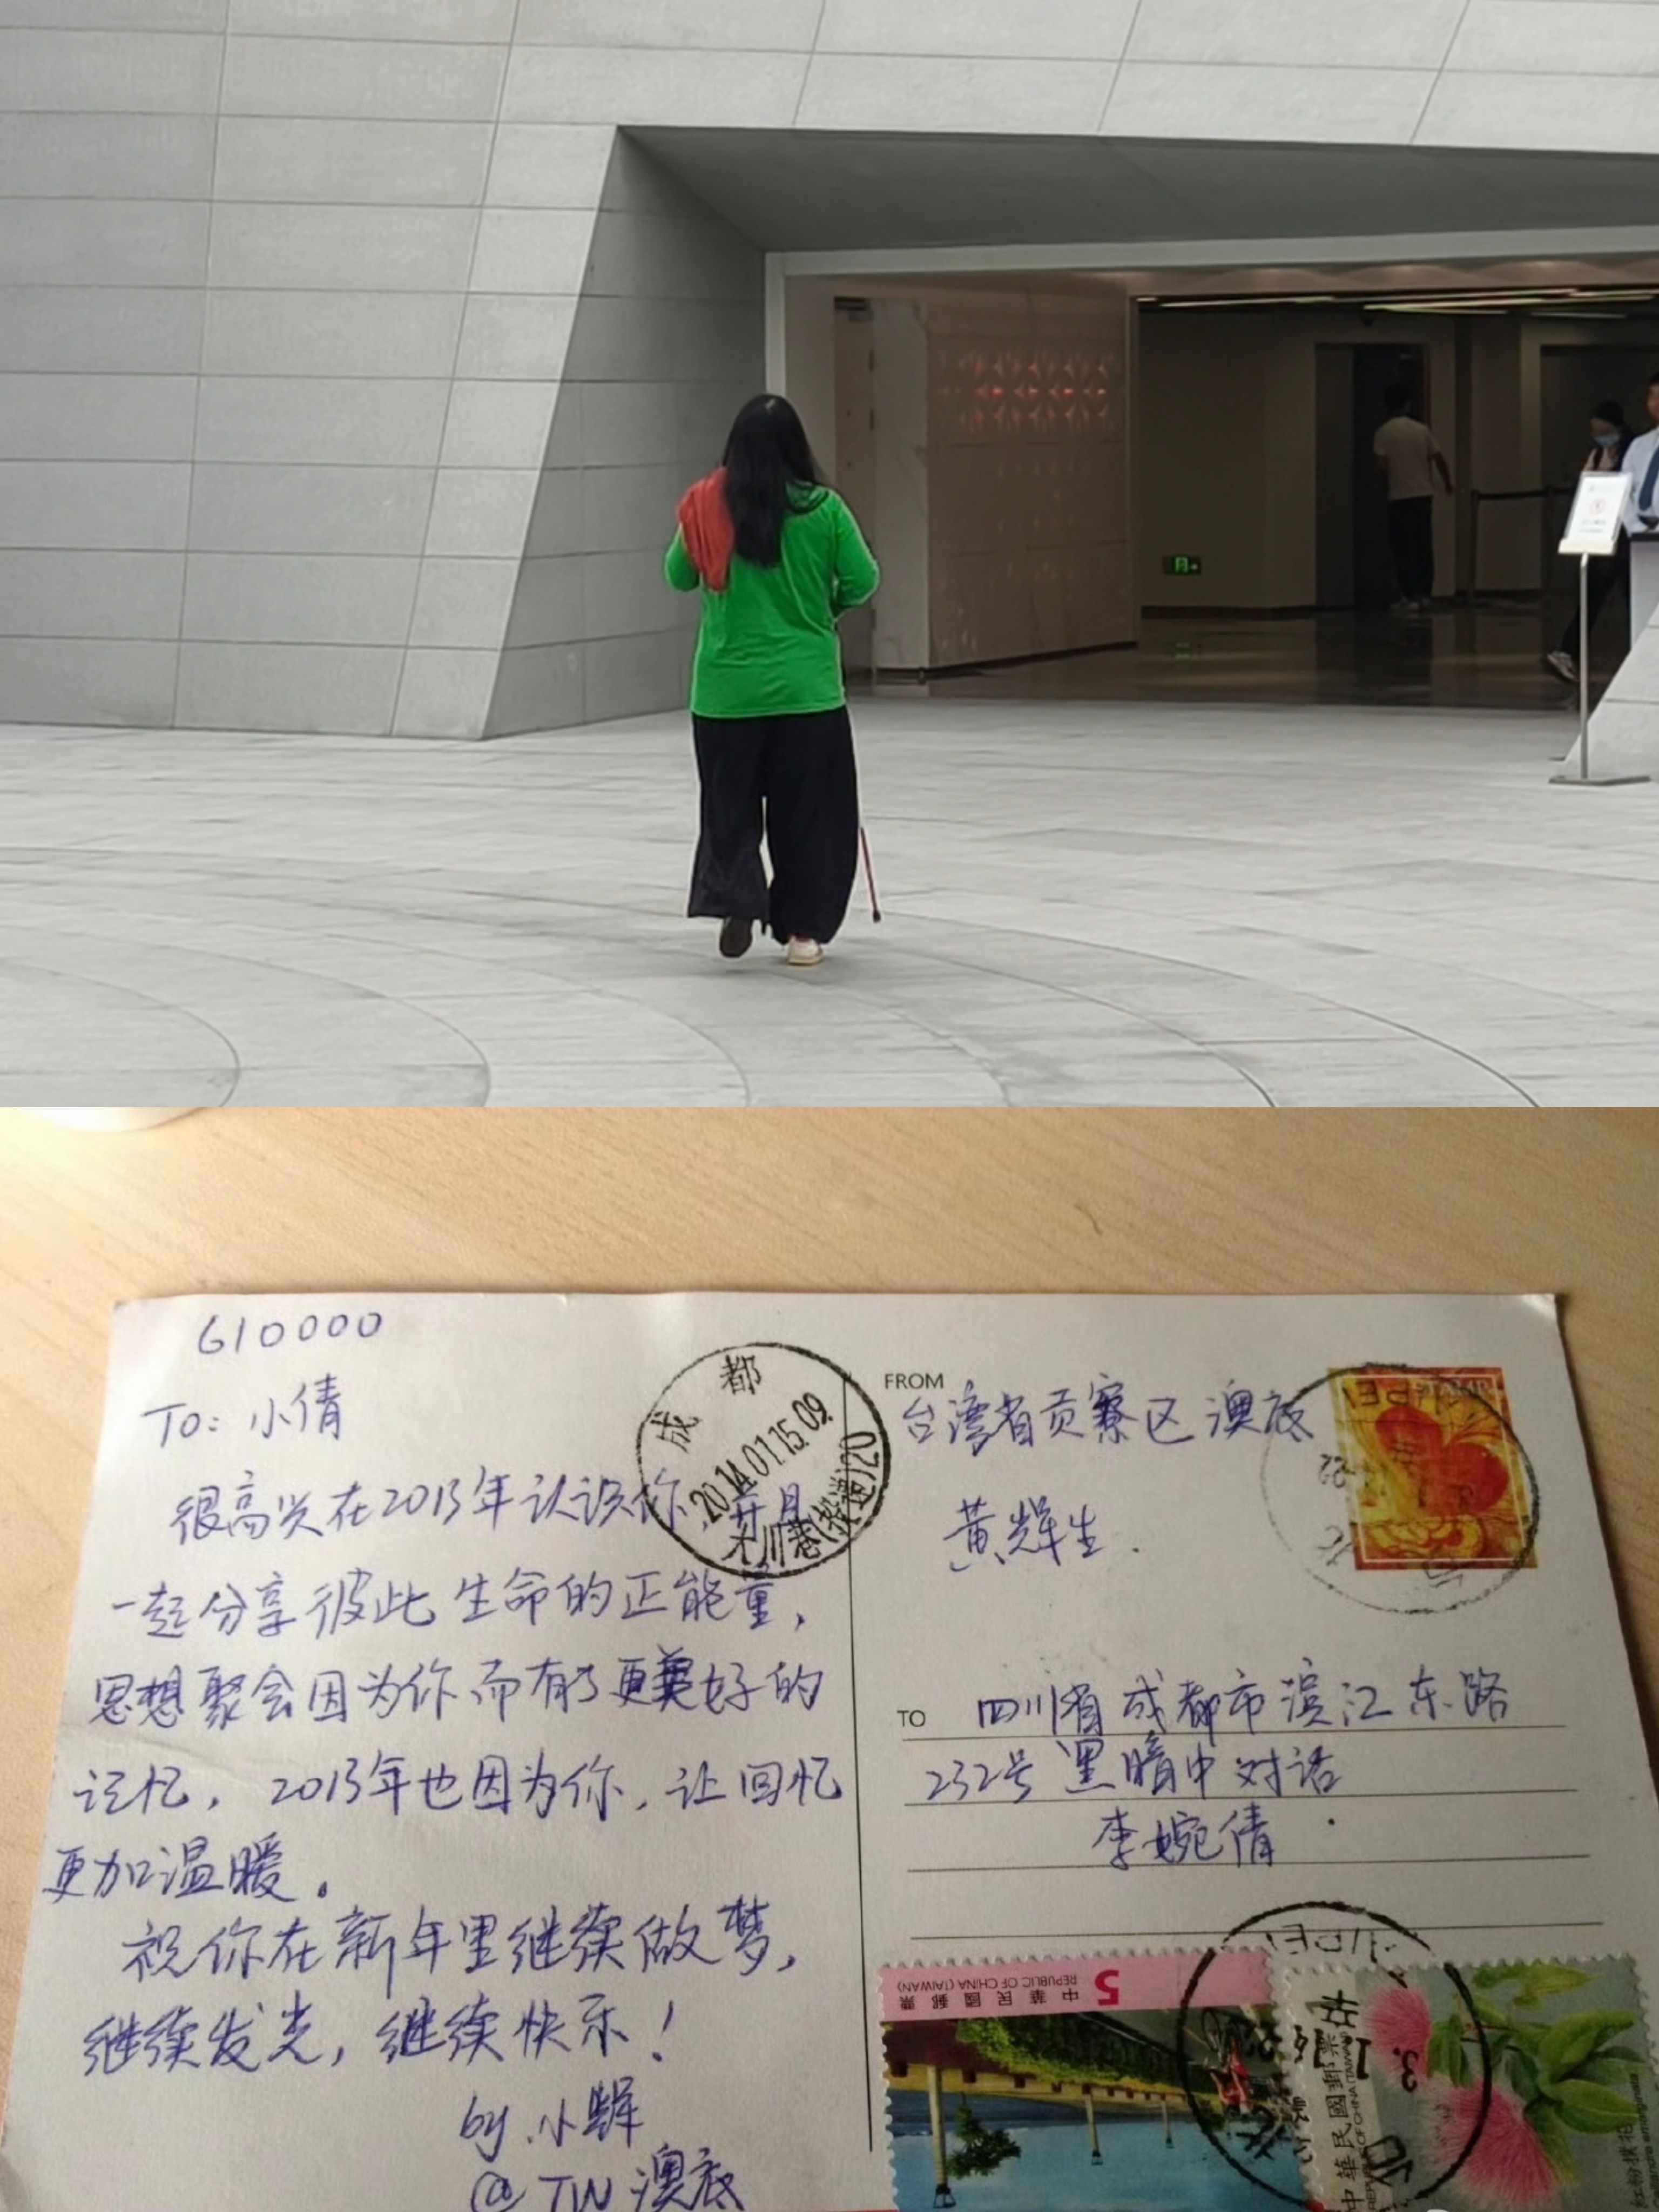 610000
TO: 小倩
很高兴在2013年认识你，并且
一起分享彼此生命的正能量，
思想聚会因为你而有了更美好的
记忆，2013年也因为你，让回忆
更加温暖。
祝你在新年里继续做梦，
继续发光，继续快乐！
by.小辉
@TW 澳底
成都
2014.01.15.09
(投递)20
FROM
台湾省贡寮区澳底
黄辉生.
TO 四川省成都市滨江东路
232号黑暗中对话
李婉倩
5
REPUBLIC OF CHINA (TAIWAN)
中華民國郵票
中華民國郵票
REPUBLIC OF CHINA (TAIWAN)